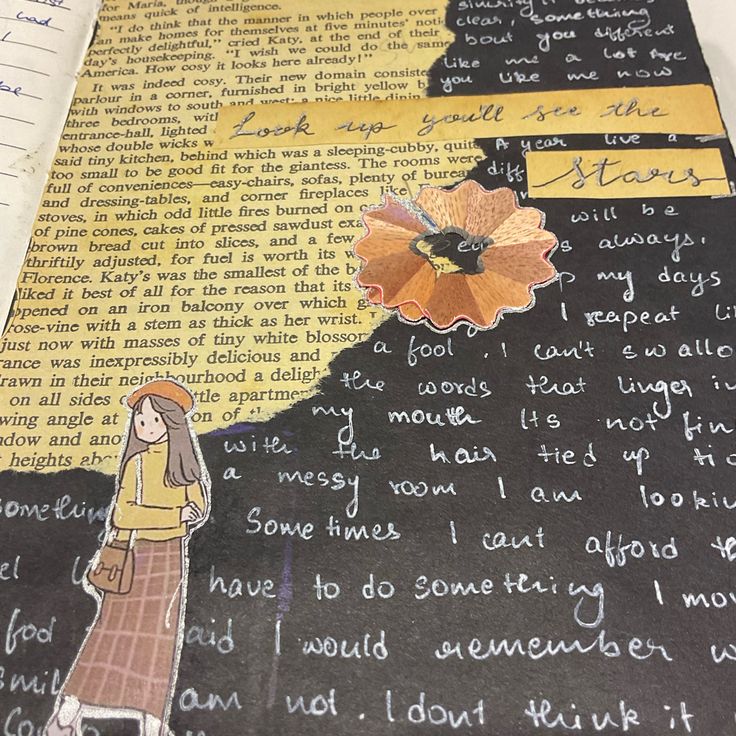 had
be
for Maria, though
means quick of intelligence.
"I do think that the manner in which people over
can make homes for themselves at five minutes' noti
perfectly delightful," cried Katy, at the end of their
day's housekeeping. "I wish we could do the same
America. How cosy it looks here already!"
It was indeed cosy. Their new domain consiste
parlour in a corner, furnished in bright yellow b
with windows to south and west; a nice little dinin
three bedrooms, with
entrance-hall, lighted
whose double wicks w
said tiny kitchen, behind which was a sleeping-cubby, quit
too small to be good fit for the giantess. The rooms were
full of conveniences—easy-chairs, sofas, plenty of bureau
and dressing-tables, and corner fireplaces like
stoves, in which odd little fires burned on
of pine cones, cakes of pressed sawdust exa
brown bread cut into slices, and a few
thriftily adjusted, for fuel is worth its w
Florence. Katy's was the smallest of the b
liked it best of all for the reason that its
opened on an iron balcony over which g
rose-vine with a stem as thick as her wrist.
just now with masses of tiny white blossom
rance was inexpressibly delicious and
drawn in their neighbourhood a deligh
on all sides ttle apartme
wing angle at on of th
ndow and ano
heights abo
clear, something
bout you different
like me a lot
you like me now
Look up you'll see the
Stars
A year live a
diff
will be
s always.
p my days
I reapeat li
a fool . I can't swallo
the words that linger in
my mouth Its not fin
with the hair tied up
a messy room I am lookin
Something
Sometimes I cant afford
have to do something I mov
aid I would remember w
smil am not . I dont think it